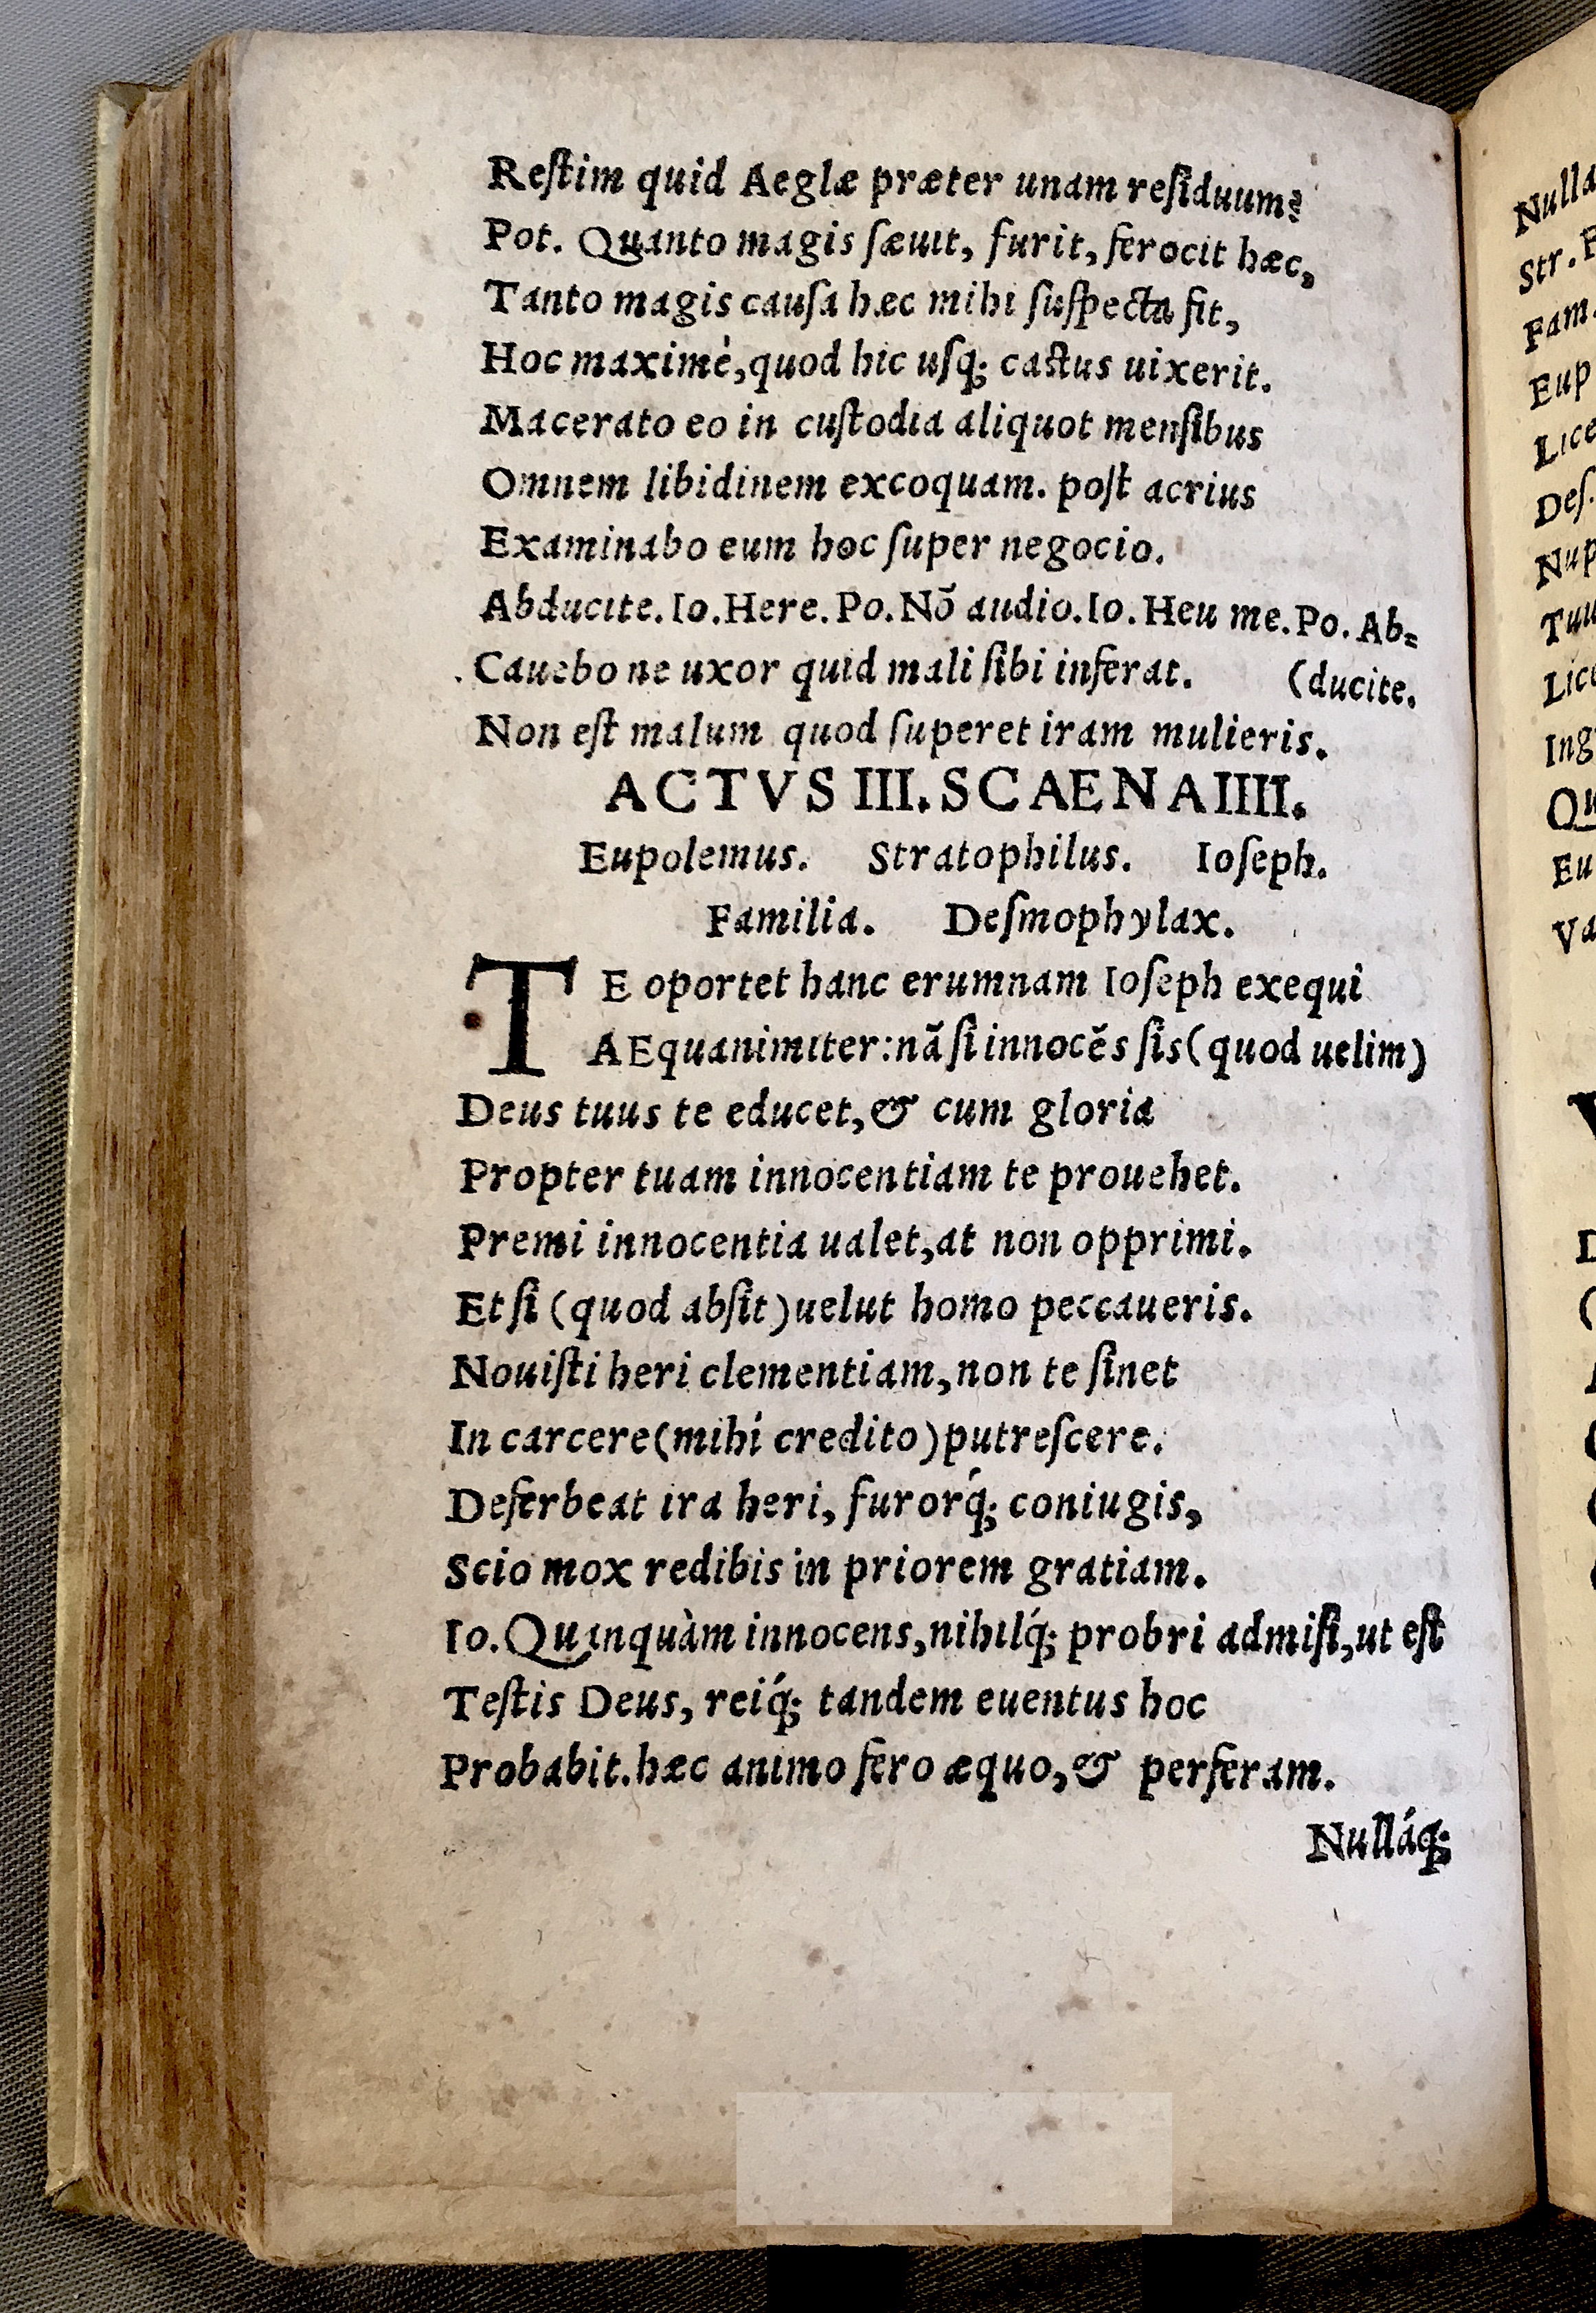 Reſtim quid Aeglæ præter unam reſiduum?
Pot. Quanto magis ſæuit, furit, ferocit hæc,
Tanto magis cauſa hæc mihi ſuſpecta fit,
Hoc maximè, quod hic uſq; caſtus uixerit.
Macerato eo in cuſtodia aliquot menſibus
Omnem libidinem excoquam. poſt acrius
Examinabo eum hoc ſuper negocio.
Abducite. Io. Here. Po. Nō audio. Io. Heu me. Po. Ab=
Cauebo ne uxor quid mali ſibi inferat. (ducite.
Non eſt malum quod ſuperet iram mulieris.
ACTVS III. SCAENA IIII.
Eupolemus. Stratophilus. Ioſeph.
Familia. Deſmophylax.
TE oportet hanc erumnam Ioſeph exequi
AEquanimiter: nã ſi innocẽs ſis (quod uelim)
Deus tuus te educet, & cum gloria
Propter tuam innocentiam te prouehet.
Premi innocentia ualet, at non opprimi.
Et ſi (quod abſit) uelut homo peccaueris.
Nouiſti heri clementiam, non te ſinet
In carcere (mihi credito) putreſcere.
Deferbeat ira heri, furorq́; coniugis,
Scio mox redibis in priorem gratiam.
Io. Quanquàm innocens, nihilq́; probri admiſi, ut eſt
Teſtis Deus, reiq́; tandem euentus hoc
Probabit. hæc animo fero æquo, & perferam.
Nulláq;
Nulla
Str.
Fam.
Eup
Lice
Deſ.
Nup
Tuu
Lice
Ing
Qu
Eu
Va